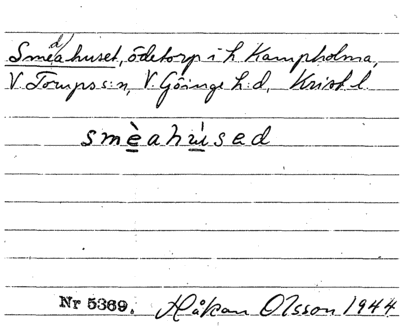 Smedahuset, ödetorp i h Kampholma,
V. Torups s:n, V. Göinge h:d, Krist. l.
smèahùsad
Nr 5369. Håkan Olsson 1944